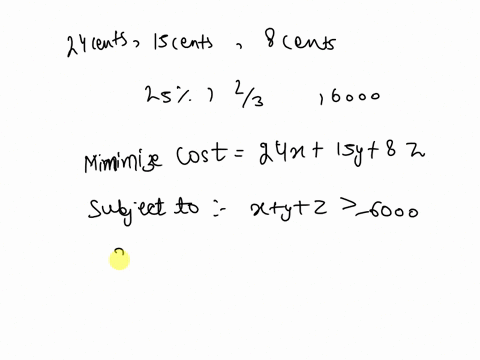 24 cents, 15 cents, 8 cents
25%, 2/3, 6000
Minimize cost = 24x + 15y + 8z
Subject to :- x+y+z ≥ 6000